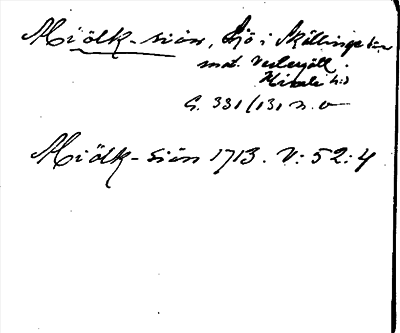 Miölk-siön, Sjö i Skällinge sn
mot Valinge
Himle hd
G. 331/131 n. o
Miölk-siön 1713. V: 52: 4